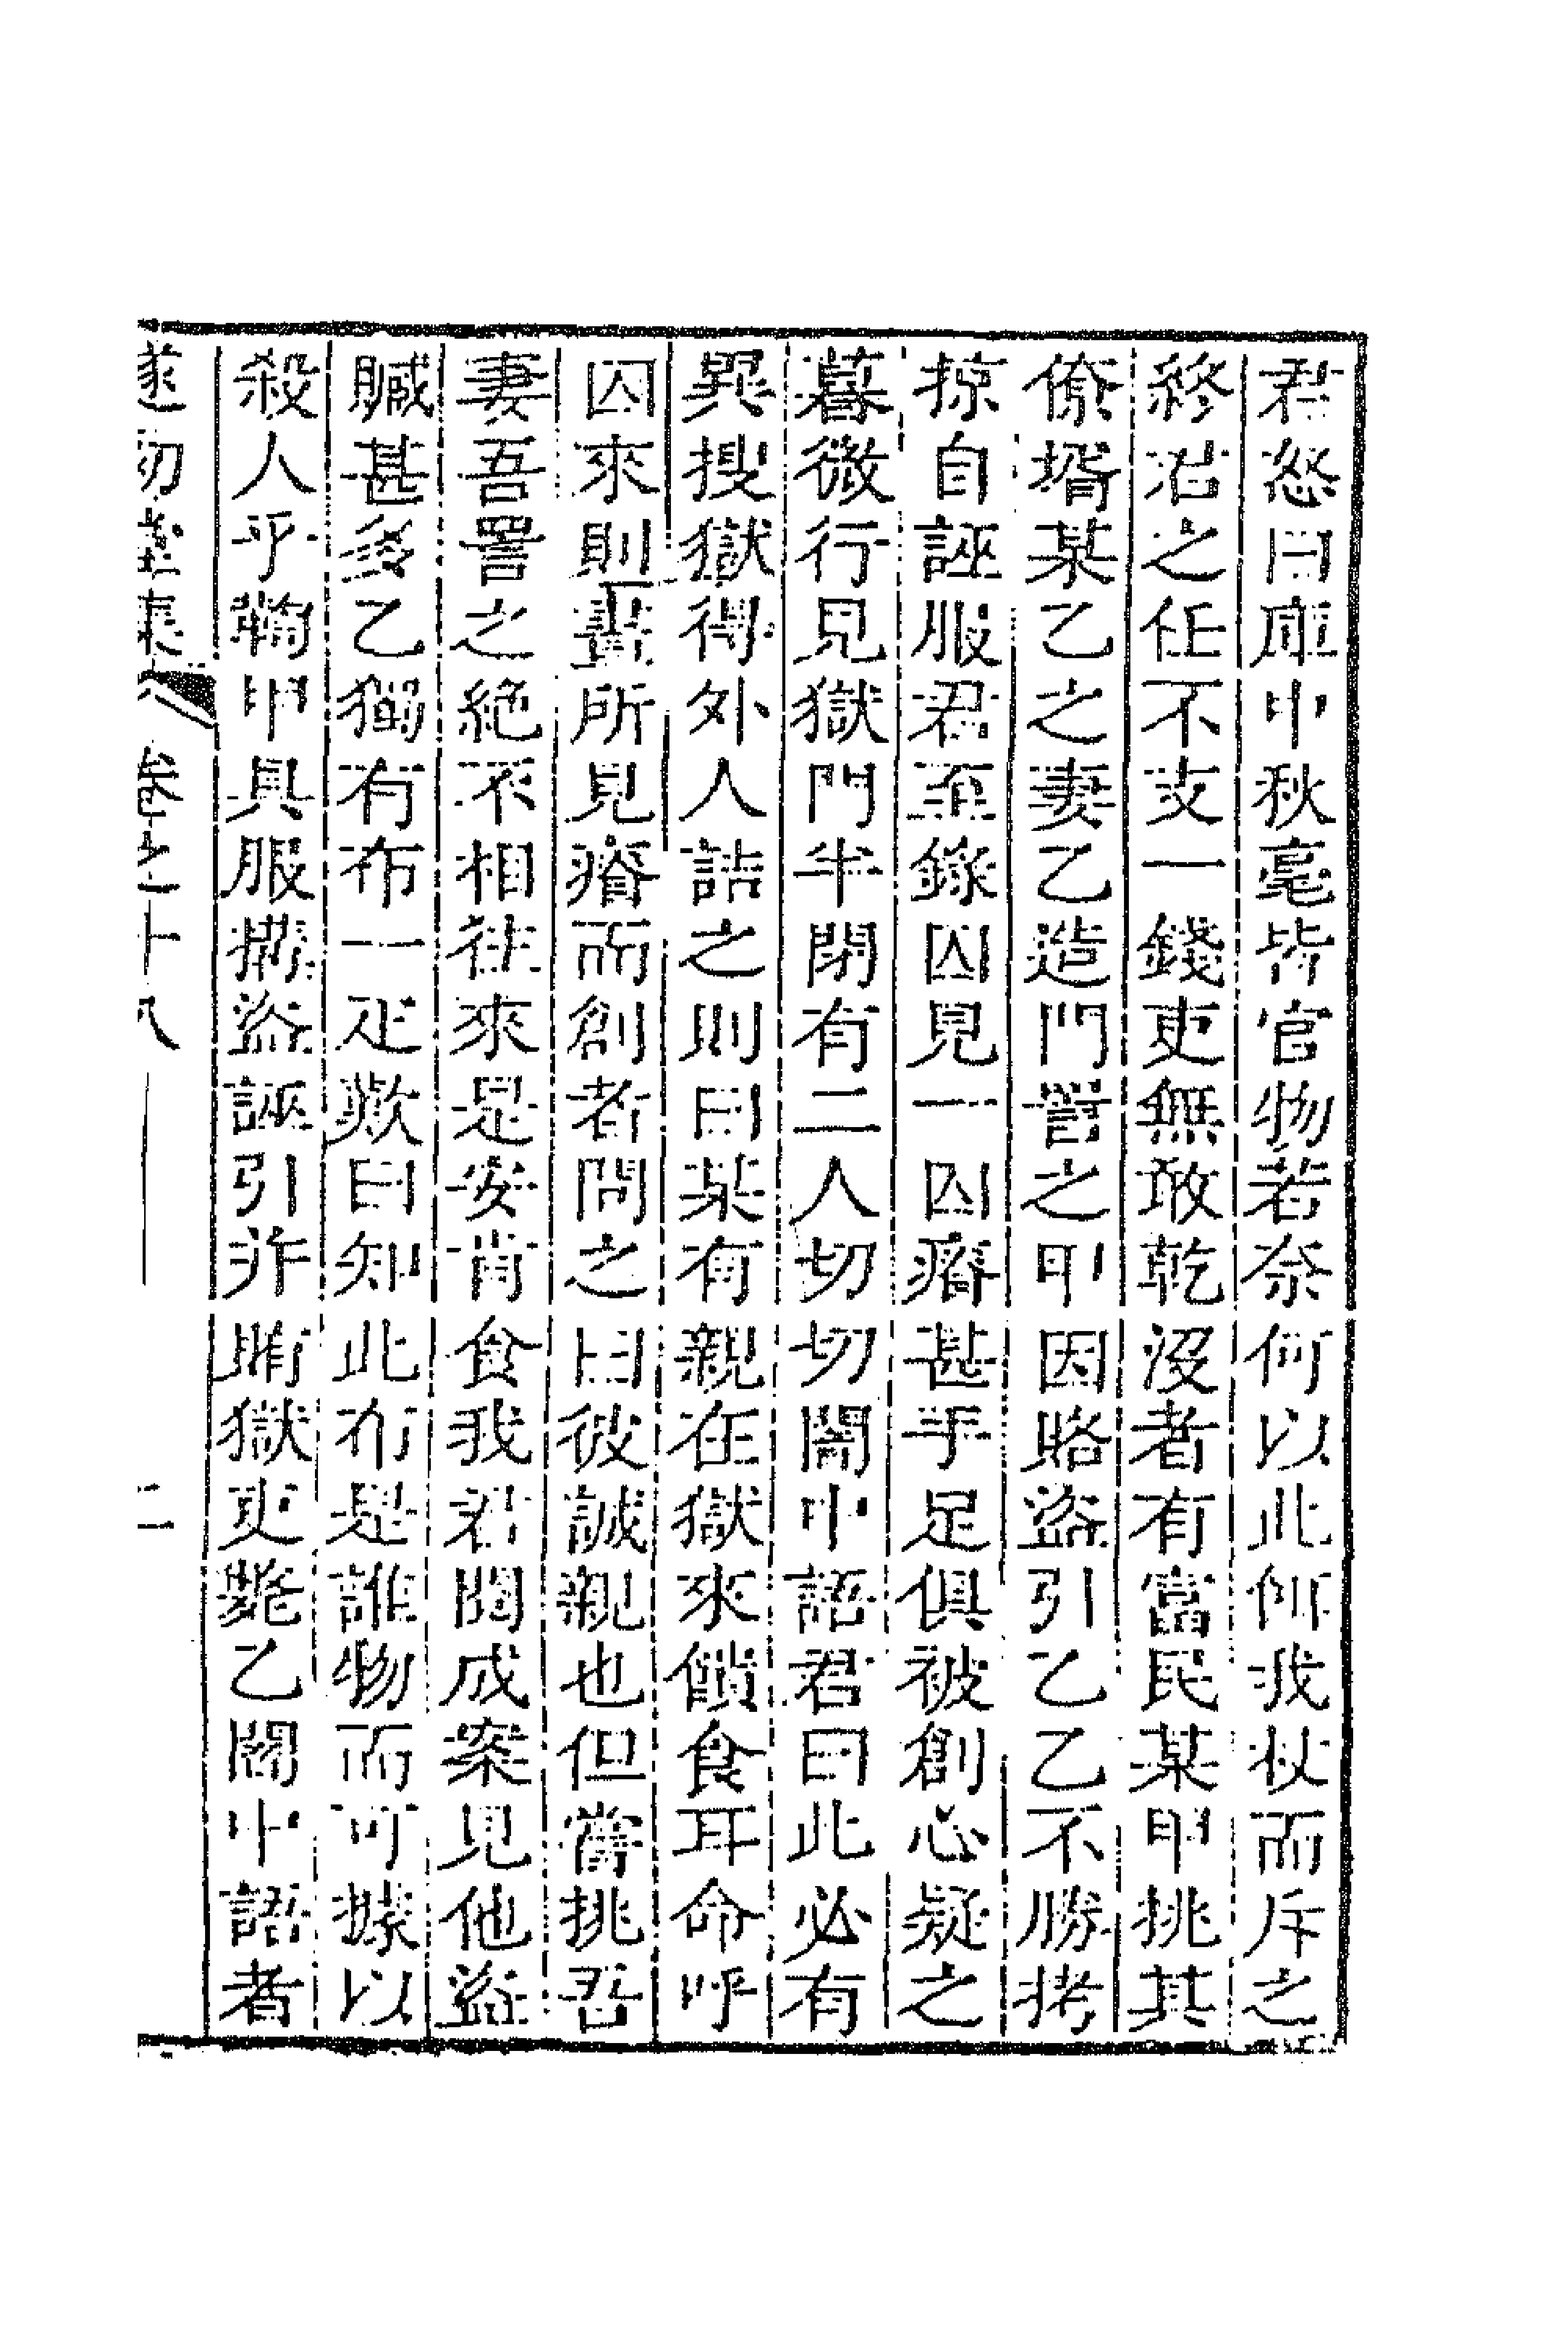 君怒曰庫中秋毫皆官物若奈何以此餌我杖而斥之
終君之任不支一錢吏無敢乾沒者有富民某甲挑其
僚壻某乙之妻乙造門詈之甲因賂盜引乙乙不勝拷
掠自誣服君至錄囚見一囚瘠甚手足俱被創心疑之
暮微行見獄門半閉有二人切切闇中語君曰此必有
異搜獄得外人詰之則曰某有親在獄來饋食耳命呼
囚來則晝所見瘠而創者問之曰彼誠親也但嘗挑吾
妻吾詈之絕不相往來是安肯食我君閱成案見他盜
贓甚多乙獨有布一疋歎曰知此布是誰物而可據以
殺人乎鞫甲具服搆盜誣引并賄獄吏斃乙闇中語者
遂初堂集 卷之十八 二